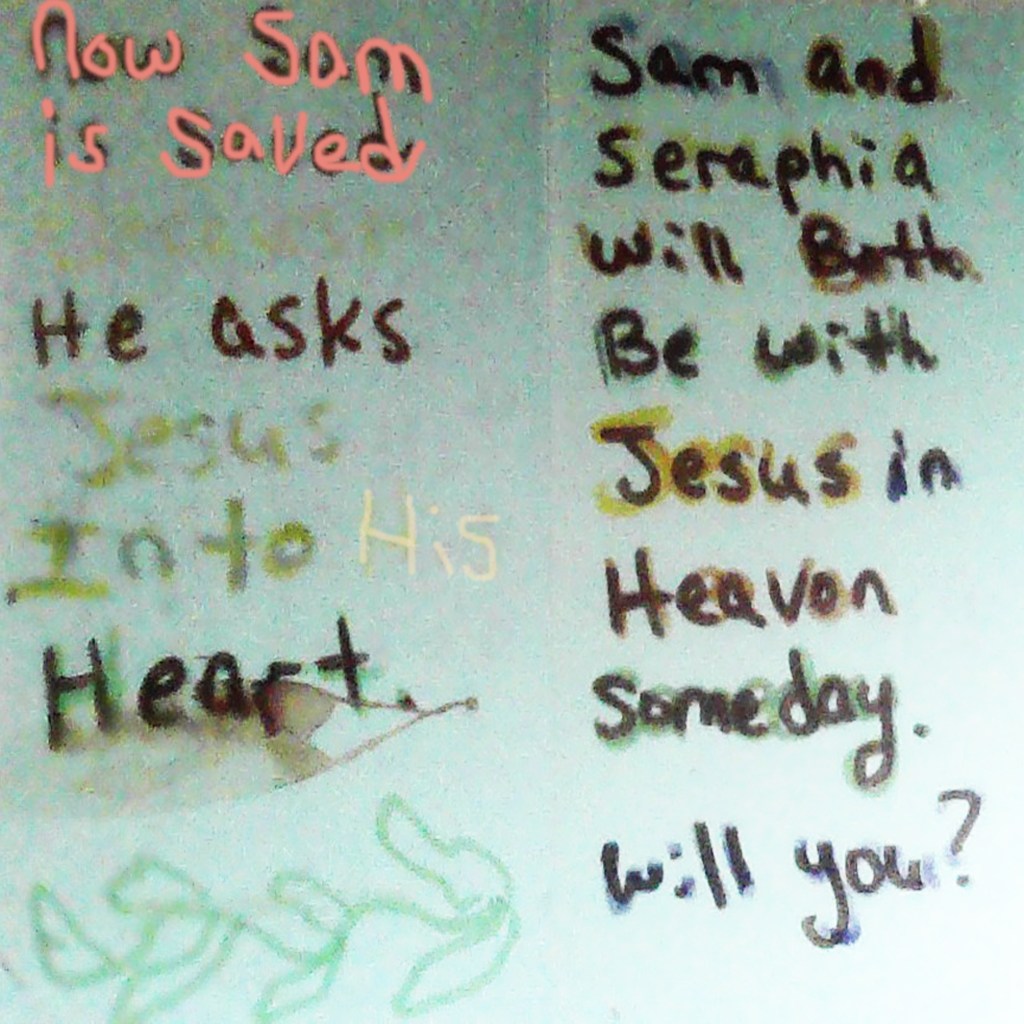 now Sam
is saved
He asks
Jesus
Into His
Heart.
Sam and
Seraphia
will Both
Be with
Jesus in
Heavon
someday.
will you?